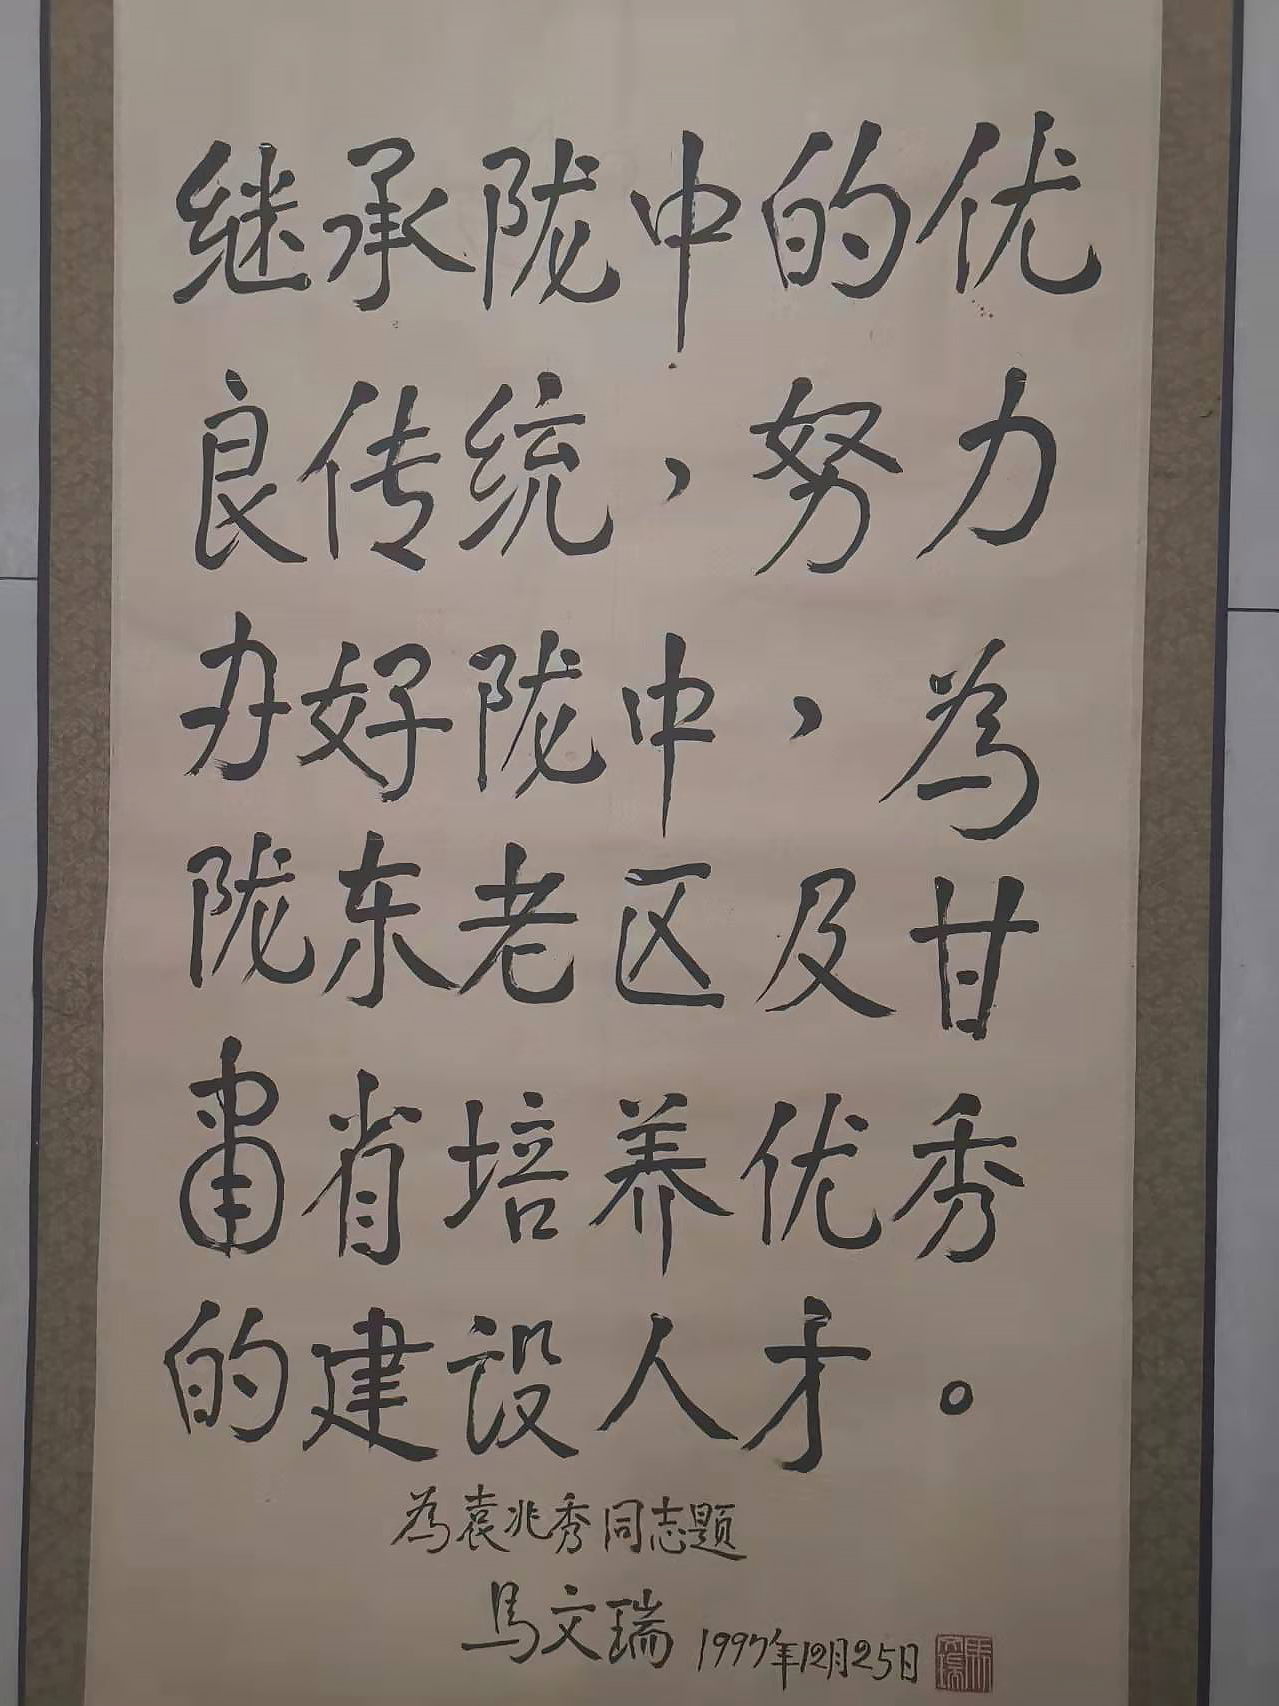 继承陇中的优
良传统，努力
办好陇中，為
陇东老区及甘
肃省培养优秀
的建设人才。
為袁兆秀同志题
马文瑞 1997年12月25日